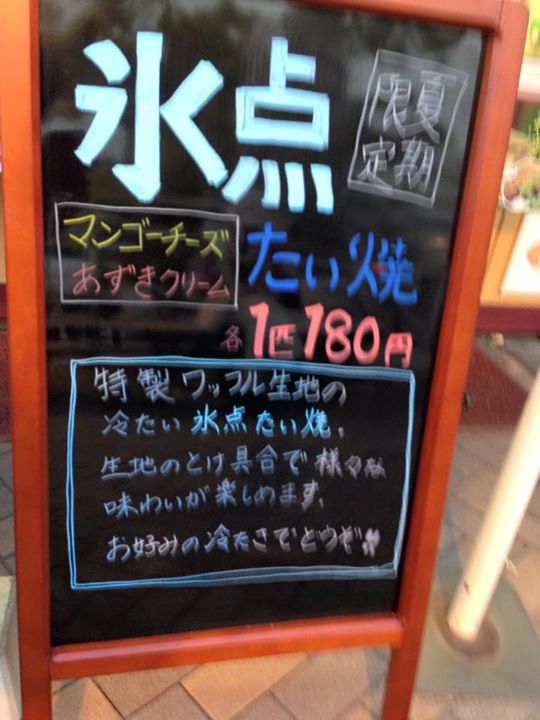 氷点
夏期限定
マンゴーチーズ
あずきクリーム
たい焼
各1匹180円
特製ワッフル生地の
冷たい氷点たい焼。
生地のとけ具合で様々な
味わいが楽しめます。
お好みの冷たさでどうぞ!!